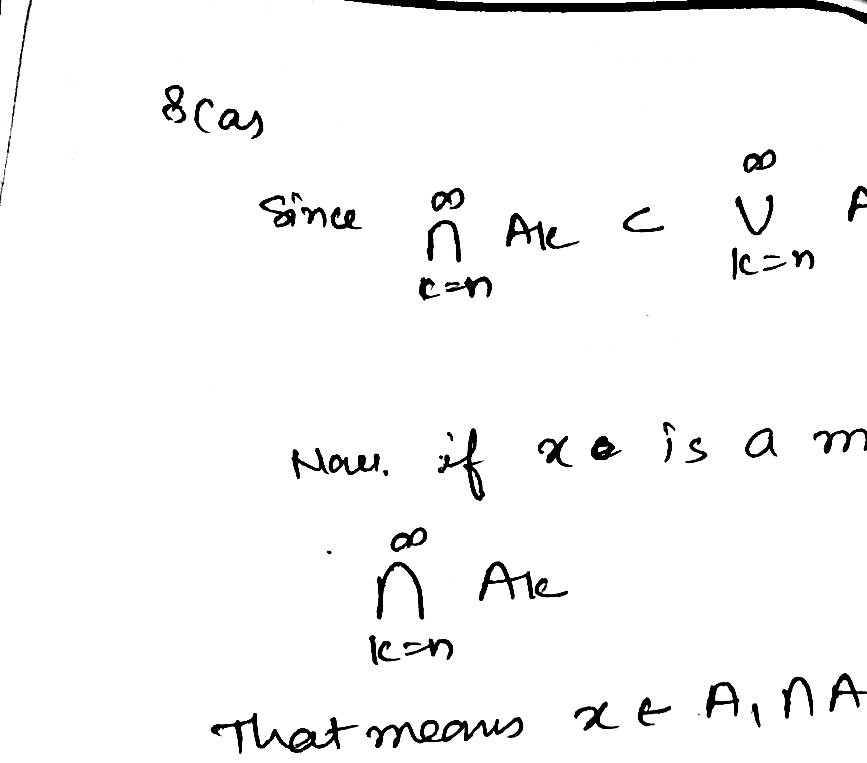 8(a)
Since ∞ ∩ k=n Ak ⊂ ∞ ∪ k=n A
Now. if x is a m
∞ ∩ k=n Ak
That means x ∈ A₁ ∩ A